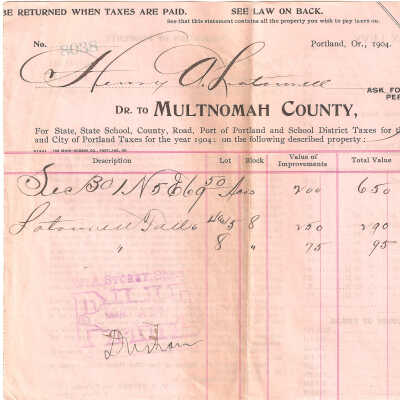 BE RETURNED WHEN TAXES ARE PAID. SEE LAW ON BACK.
See that this statement contains all the property you wish to pay taxes on.
No. 8038 Portland, Or., 1904.
Henry A. Latourell
ASK FO
PER
DR. TO MULTNOMAH COUNTY,
For State, State School, County, Road, Port of Portland and School District Taxes for th
and City of Portland Taxes for the year 1904: on the following described property:
Description Lot Block Value of Improvements Total Value
Sec 30 1 N 5 E 69 50 Acres 200 650
Latourell Falls 4&5 8 250 290
" 8 " 75 95
W. A. STOREY, Sheriff
PAID